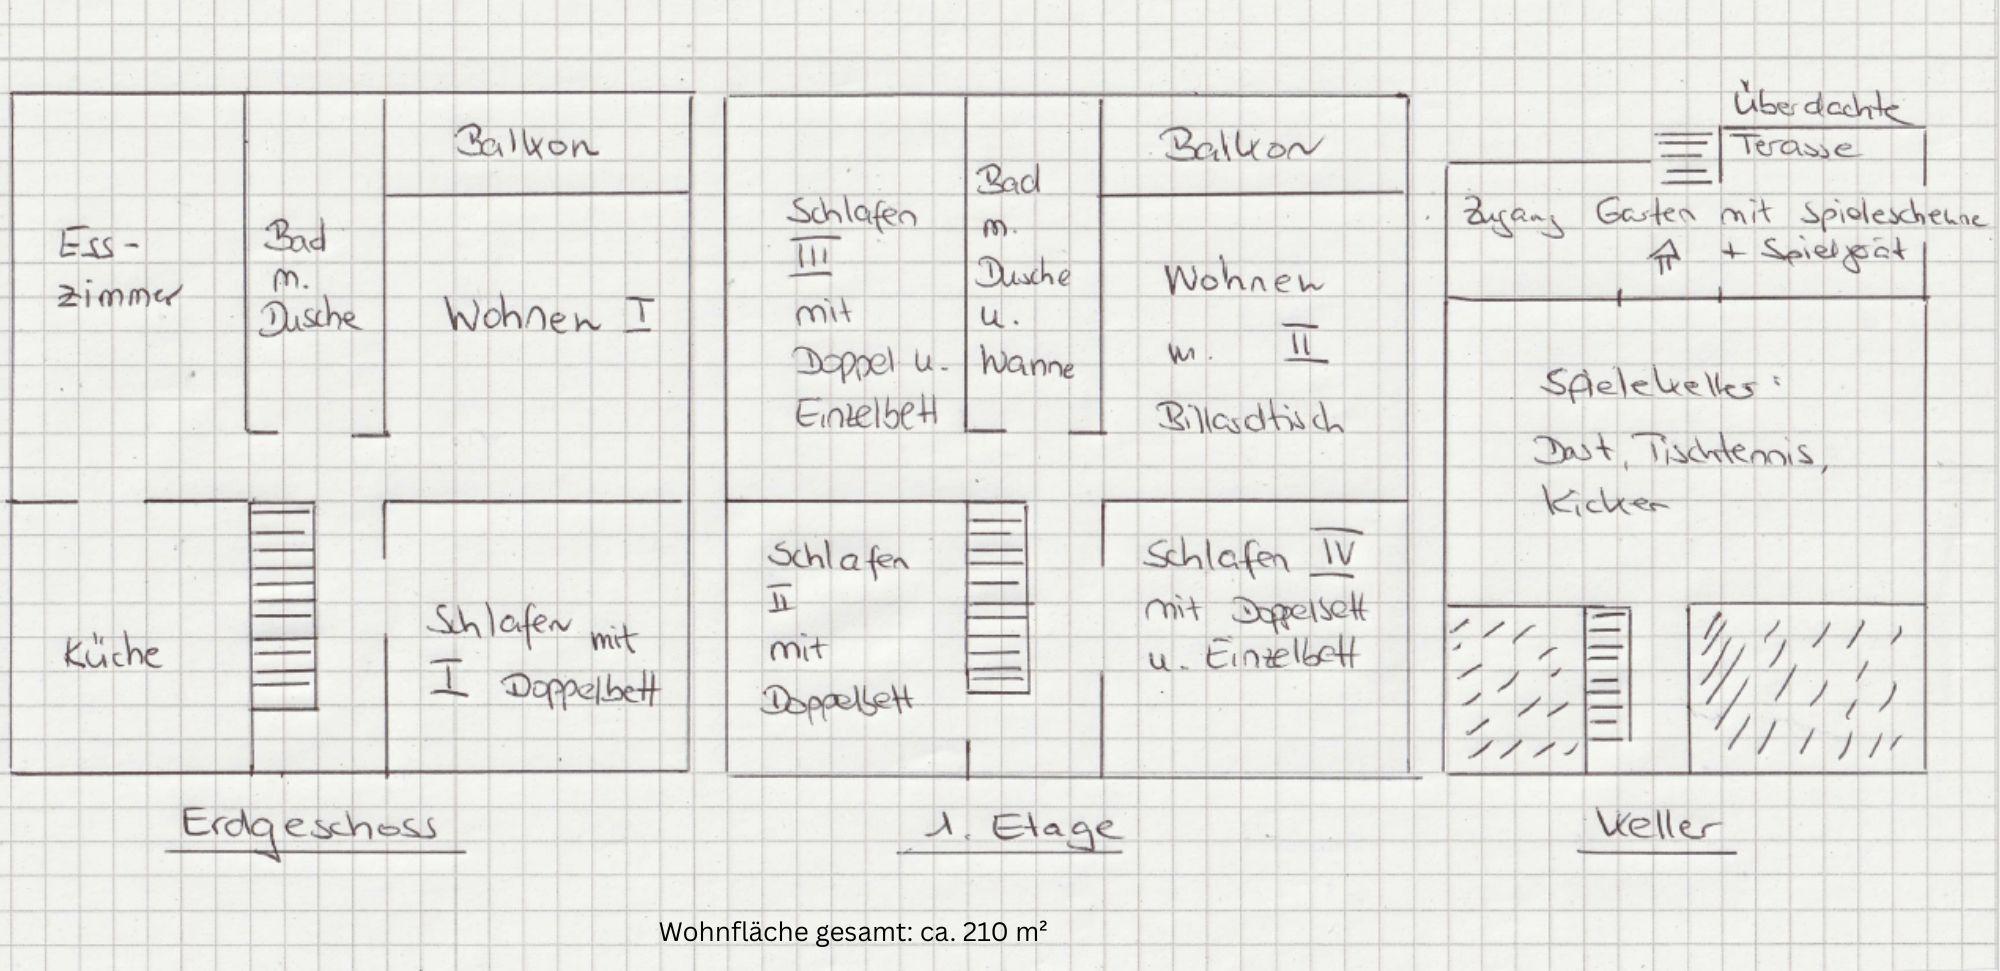 Balkon
Ess-
zimmer
Bad
m.
Dusche
Wohnen I
Küche
Schlafen mit
I Doppelbett
Erdgeschoss
Balkon
Schlafen
III
mit
Doppel u.
Einzelbett
Bad
m.
Dusche
u.
Wanne
Wohnen
m. II
Billardtisch
Schlafen
II
mit
Doppelbett
Schlafen IV
mit Doppelbett
u. Einzelbett
1. Etage
Überdachte
Terasse
Zugang Garten mit Spielescheune
+ Spielgerät
Spielekeller:
Dart, Tischtennis,
Kicker
Keller
Wohnfläche gesamt: ca. 210 m²